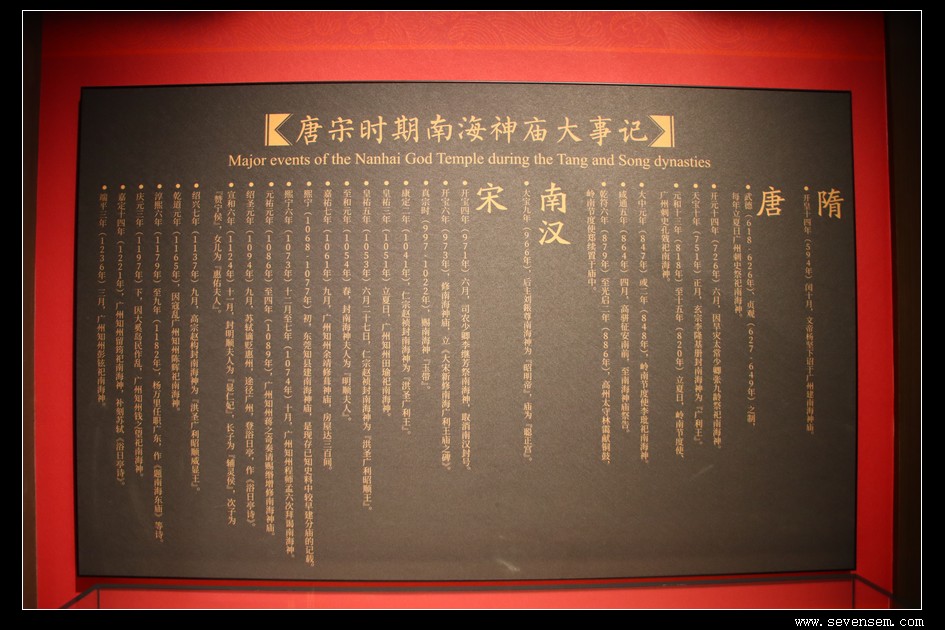 唐宋时期南海神庙大事记
Major events of the Nanhai God Temple during the Tang and Song dynasties
隋
开皇十四年（594年）闰十月，文帝杨坚下诏于广州建南海神庙。
唐
武德（618-626年）、贞观（627-649年）之制，
每年立夏日广州刺史祭祀南海神。
开元十四年（726年）六月，因旱灾太常少卿张九龄祭南海神。
天宝十年（751年）正月，玄宗李隆基册封南海神为『广利王』。
元和十三年（818年）至十五年（820年）立夏日，岭南节度使、
广州刺史孔戣祀南海神。
大中元年（847年）或二年（848年），岭南节度使李玭祀南海神。
咸通五年（864年）四月，高骈征安南前，至南海神庙祭告。
乾符六年（879年）至光启二年（886年），高州太守林霭献铜鼓，
岭南节度使郑续置于庙中。
南汉
大宝九年（966年），后主刘鋹尊南海神为『昭明帝』，庙为『聪正宫』。
宋
开宝四年（971年）六月，司农少卿李继芳祭南海神，取消南汉封号。
开宝六年（973年），修南海神庙，立《大宋新修南海广利王庙之碑》。
真宗时（997-1022年），赐南海神『玉带』。
康定二年（1041年），仁宗赵祯封南海神为『洪圣广利王』。
皇祐三年（1051年）立夏日，广州知州田瑜祀南海神。
皇祐五年（1053年）六月二十七日，仁宗赵祯封南海神为『洪圣广利昭顺王』。
至和元年（1054年）春，封南海神夫人为『明顺夫人』。
嘉祐七年（1061年）九月，广州知州余靖重葺神庙，房屋达三百间。
熙宁（1068-1077年）初，东莞知县建南海神庙，是现存已知史料中较早建分庙的记载。
熙宁六年（1073年）十二月至七年（1074年）十月，广州知州程师孟六次拜谒南海神。
元祐元年（1086年）至四年（1089年），广州知州蒋之奇奏请赐缗增修南海神庙。
绍圣元年（1094年）九月，苏轼谪贬惠州，途径广州，登浴日亭，作《浴日亭》。
宣和六年（1124年）十一月，封明顺夫人为『显仁妃』，长子为『辅灵侯』，次子为
『赞宁侯』，女儿为『惠佑夫人』。
绍兴七年（1137年）九月，高宗赵构封南海神为『洪圣广利昭顺威显王』。
乾道元年（1165年），因寇乱广州知州陈辉祀南海神。
淳熙六年（1179年）至九年（1182年），杨万里任职广东，作《题南海东庙》等诗。
庆元三年（1197年）下，因大奚岛民作乱，广州知州钱之望祀南海神。
嘉定十四年（1221年），广州知州留筠祀南海神，补刻苏轼《浴日亭诗》。
端平三年（1236年）三月，广州知州彭铉祀南海神。
www.sevensem.com